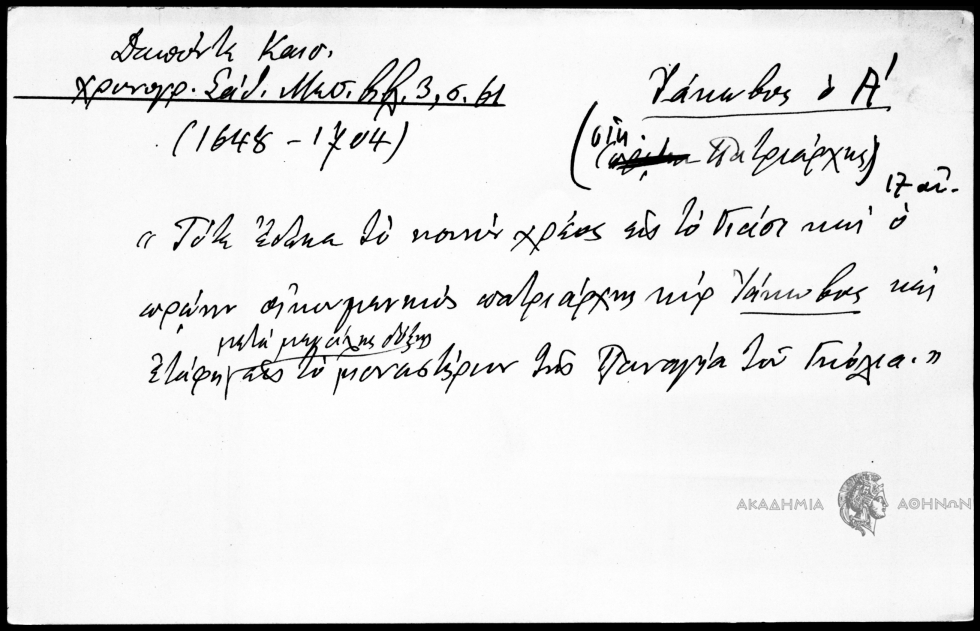 Δαπόντε Καισ.
χρονογρ. Σάθ. Μεσ. βιβλ. 3, σ. 61
(1648 - 1704)
Ἰάκωβος ὁ Α΄
(οἰκ. Πατριάρχης)
17 αἰ.
« Τότε ἔδωκα τὸ κοινὸν χρέος εἰς τὸ Γιάσι καὶ ὁ
πρώην οἰκουμενικὸς πατριάρχης κὺρ Ἰάκωβος καὶ
μετὰ μεγάλης δόξης
ἐτάφη εἰς τὸ μοναστήριον τῆς Παναγία τοῦ Γκόλια. »
ΑΚΑΔΗΜΙΑ ΑΘΗΝΩΝ